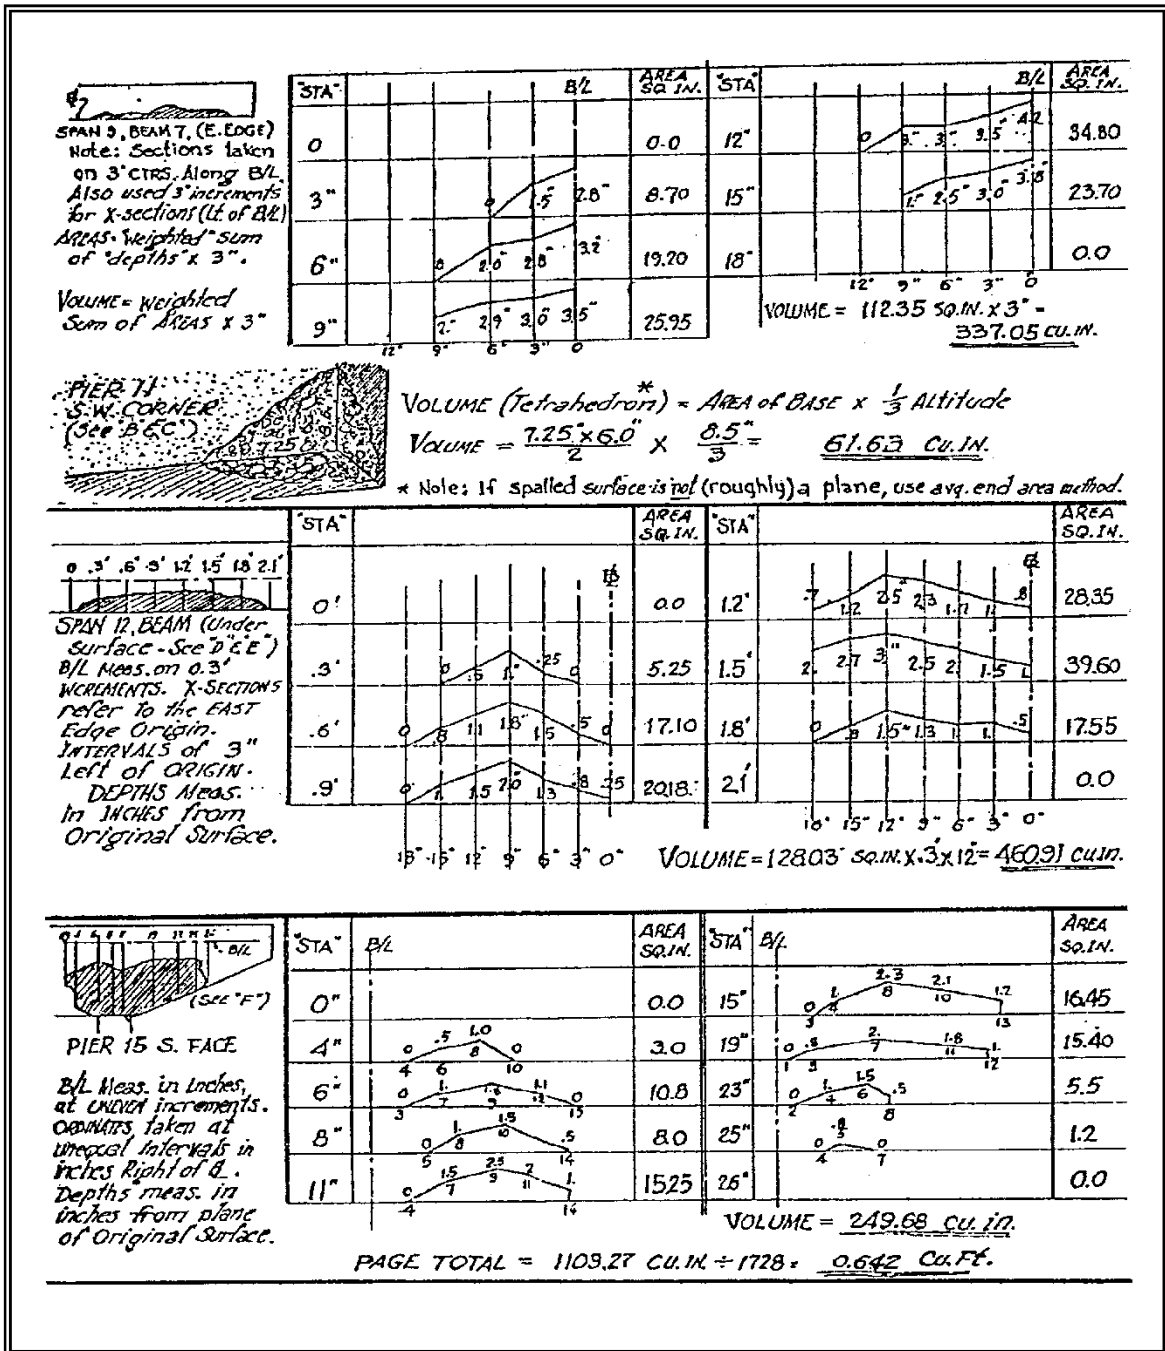 "STA" B/L AREA SQ. IN. "STA" B/L AREA SQ. IN.
SPAN 9, BEAM 7, (E. EDGE)
Note: Sections taken
on 3" CTRS. Along B/L.
Also used 3" increments
for X-sections (Lt. of B/L)
AREAS = "Weighted" Sum
of "depths" x 3".
VOLUME = Weighted
Sum of AREAS x 3"
0 0.0 12" 0 3." 3." 3.5" 4.2 34.80
3" 0 1.5" 2.8" 8.70 15" 1." 2.5" 3.0" 3.8" 23.70
6" 0 2.0" 2.8" 3.2" 19.20 18" 0.0
9" 2." 2.9" 3.0" 3.5" 25.95
12" 9" 6" 3" 0
12" 9" 6" 3" 0"
VOLUME = 112.35 SQ.IN. x 3" =
337.05 CU. IN.
PIER 11
S.W. CORNER
(See "B & C")
VOLUME (Tetrahedron)* = AREA of BASE x 1/3 Altitude
VOLUME = 7.25" x 6.0" / 2 x 8.5" / 3 = 61.63 CU. IN.
* Note: If spalled surface is not (roughly) a plane, use avg. end area method.
"STA" AREA SQ. IN. "STA" AREA SQ. IN.
0 .3' .6' .9' 1.2' 1.5' 1.8' 2.1'
SPAN 12, BEAM (Under
surface - See "D" & "E")
B/L Meas. on 0.3'
INCREMENTS. X-SECTIONS
refer to the EAST
Edge Origin.
INTERVALS of 3"
Left of ORIGIN.
DEPTHS Meas.
In INCHES from
Original Surface.
0' 0.0 1.2' .7 1.2 2.5" 2.3 1.7 1. .8 28.35
.3' 0 .5 1." .25 0 5.25 1.5' 2. 2.7 3." 2.5 2. 1.5 1. 39.60
.6' 0 .8 1.1 1.8" 1.5 .5 0 17.10 1.8' 0 .8 1.5" 1.3 1. 1. .5 17.55
.9' 0 1. 1.5 2.0" 1.3 .8 .25 20.18 2.1' 0.0
18" 15" 12" 9" 6" 3" 0"
18" 15" 12" 9" 6" 3" 0"
VOLUME = 128.03 SQ.IN. x .3' x 12" = 460.91 cu.in.
"STA" B/L AREA SQ.IN. "STA" B/L AREA SQ.IN.
B/L
(SEE "F")
PIER 15 S. FACE
B/L Meas. in inches,
at UNEVEN increments.
ORDINATES taken at
unequal Intervals in
inches Right of B/L.
Depths meas. in
inches from plane
of Original Surface.
0" 0.0 15" 1. 2.3 2.1 1.2 3 4 8 10 13 16.45
4" 0 .5 1.0 0 4 6 8 10 3.0 19" 0 .8 2. 1.8 1. 1 3 7 11 12 15.40
6" 0 1. 1.8 1.1 0 3 7 9 12 15 10.8 23" 0 1. 1.5 .5 2 4 6 8 5.5
8" 0 1. 1.5 .5 5 8 10 14 8.0 25" 0 .8 0 4 5 7 1.2
11" 0 1.5 2.5 2 1. 4 7 9 11 14 15.25 26" 0.0
VOLUME = 249.68 cu. in.
PAGE TOTAL = 1109.27 CU. IN. ÷ 1728 = 0.642 Cu. Ft.